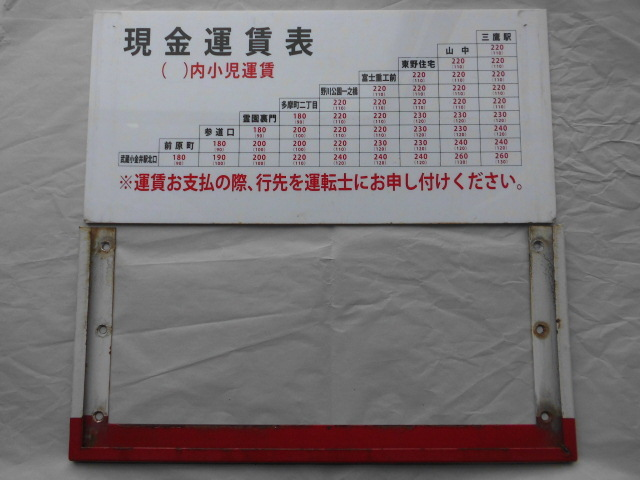 現金運賃表
( )内小児運賃
三鷹駅
山中 220 (110)
東野住宅 220 (110) 220 (110)
富士重工前 220 (110) 220 (110) 220 (110)
野川公園一之橋 220 (110) 220 (110) 220 (110) 220 (110)
多摩町二丁目 220 (110) 220 (110) 220 (110) 220 (110) 220 (110)
霊園裏門 180 (90) 220 (110) 220 (110) 220 (110) 230 (120) 230 (120)
参道口 180 (90) 200 (100) 220 (110) 220 (110) 220 (110) 230 (120) 230 (120)
前原町 180 (90) 200 (100) 200 (100) 220 (110) 230 (120) 230 (120) 240 (120) 240 (120)
武蔵小金井駅北口 180 (90) 190 (100) 200 (100) 220 (110) 240 (120) 240 (120) 240 (120) 260 (130) 260 (130)
※運賃お支払の際、行先を運転士にお申し付けください。